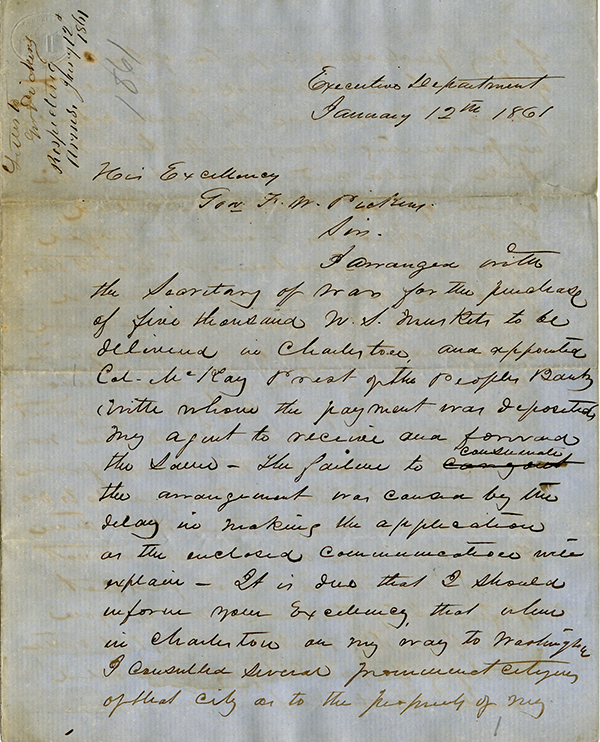 to Gov Pickens
Respecting
Arms. Jany 12th
1861
1861
Executive Department
January 12th 1861
His Excellency
Gov F. W. Pickens.
Sir.
I arranged with
the Secretary of War for the purchase
of five thousand U. S. Muskets to be
delivered in Charleston, and appointed
Col. McKay Prest of the Peoples Bank
(with whom the payment was deposited)
my agent to receive and forward
the same – The failure to carry out consumate
the arrangement was caused by the
delay in making the application
as the enclosed communication will
explain – It is due that I should
inform your Excellency, that when
in Charleston on my way to Washington
I consulted several prominent citizens
of that city as to the propriety of my
1